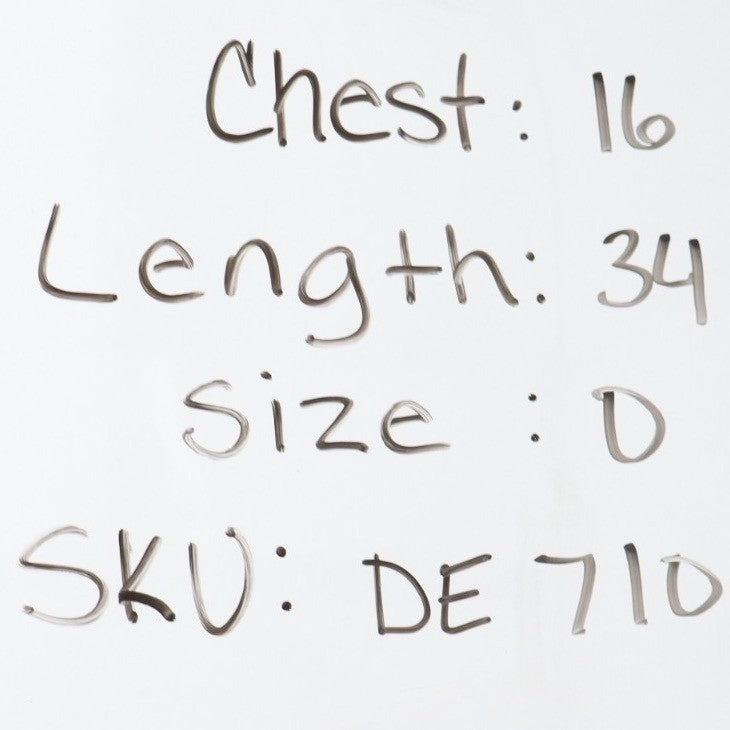 Chest: 16
Length: 34
Size: 0
SKU: DE 710